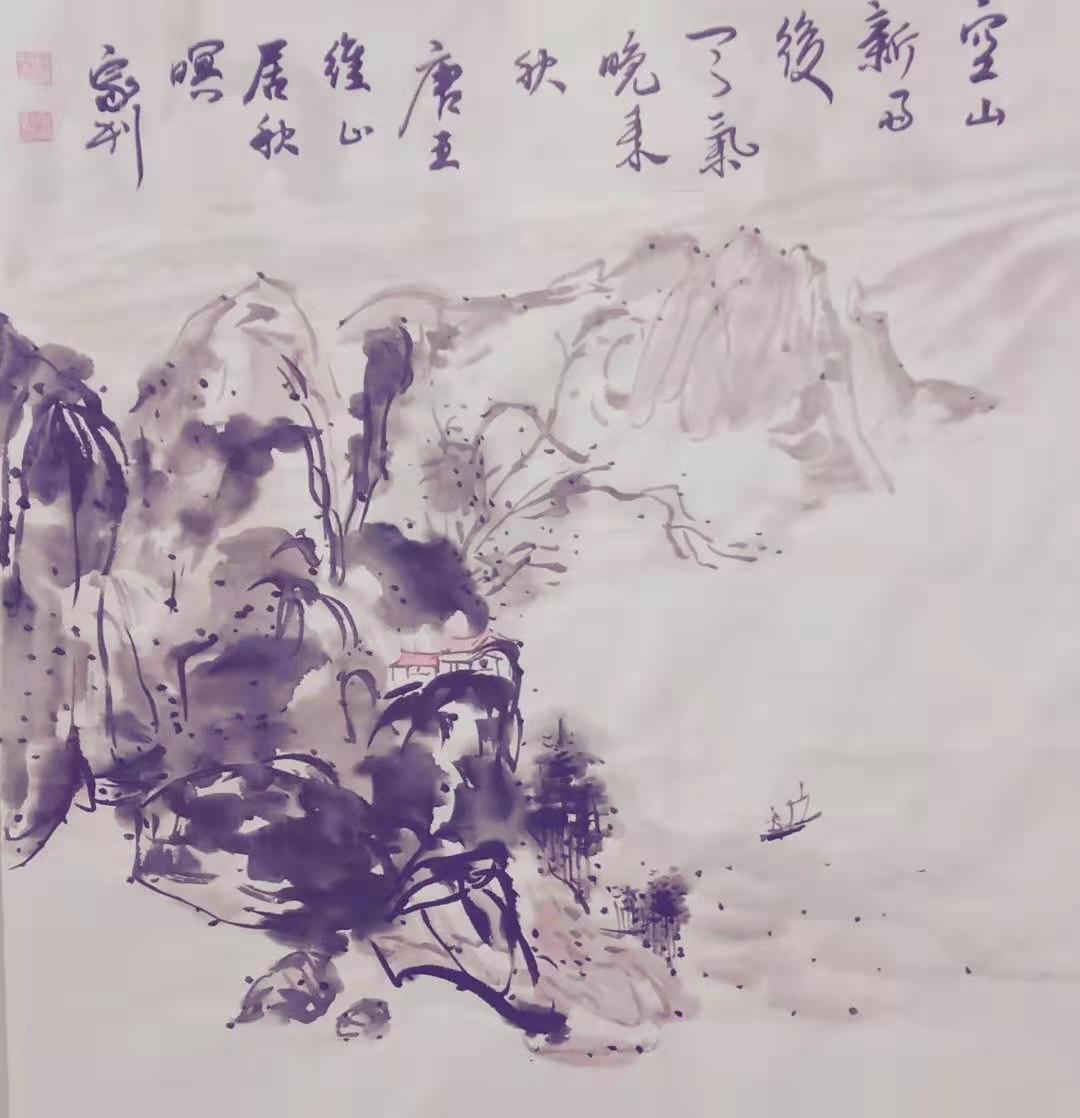 空山
新雨
後
天氣
晚來
秋
唐王
維山
居秋
暝
家